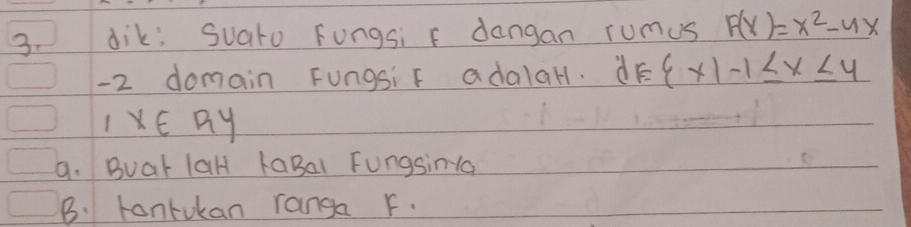 3. dik: Suato Fungsi F dangan rumus F(x)=x²-4x
-2 domain Fungsi F adalaH. dF={x|-1≤x≤4
, x∈R}
a. Buat laH taBal Fungsinya
B. tantukan ranga F.